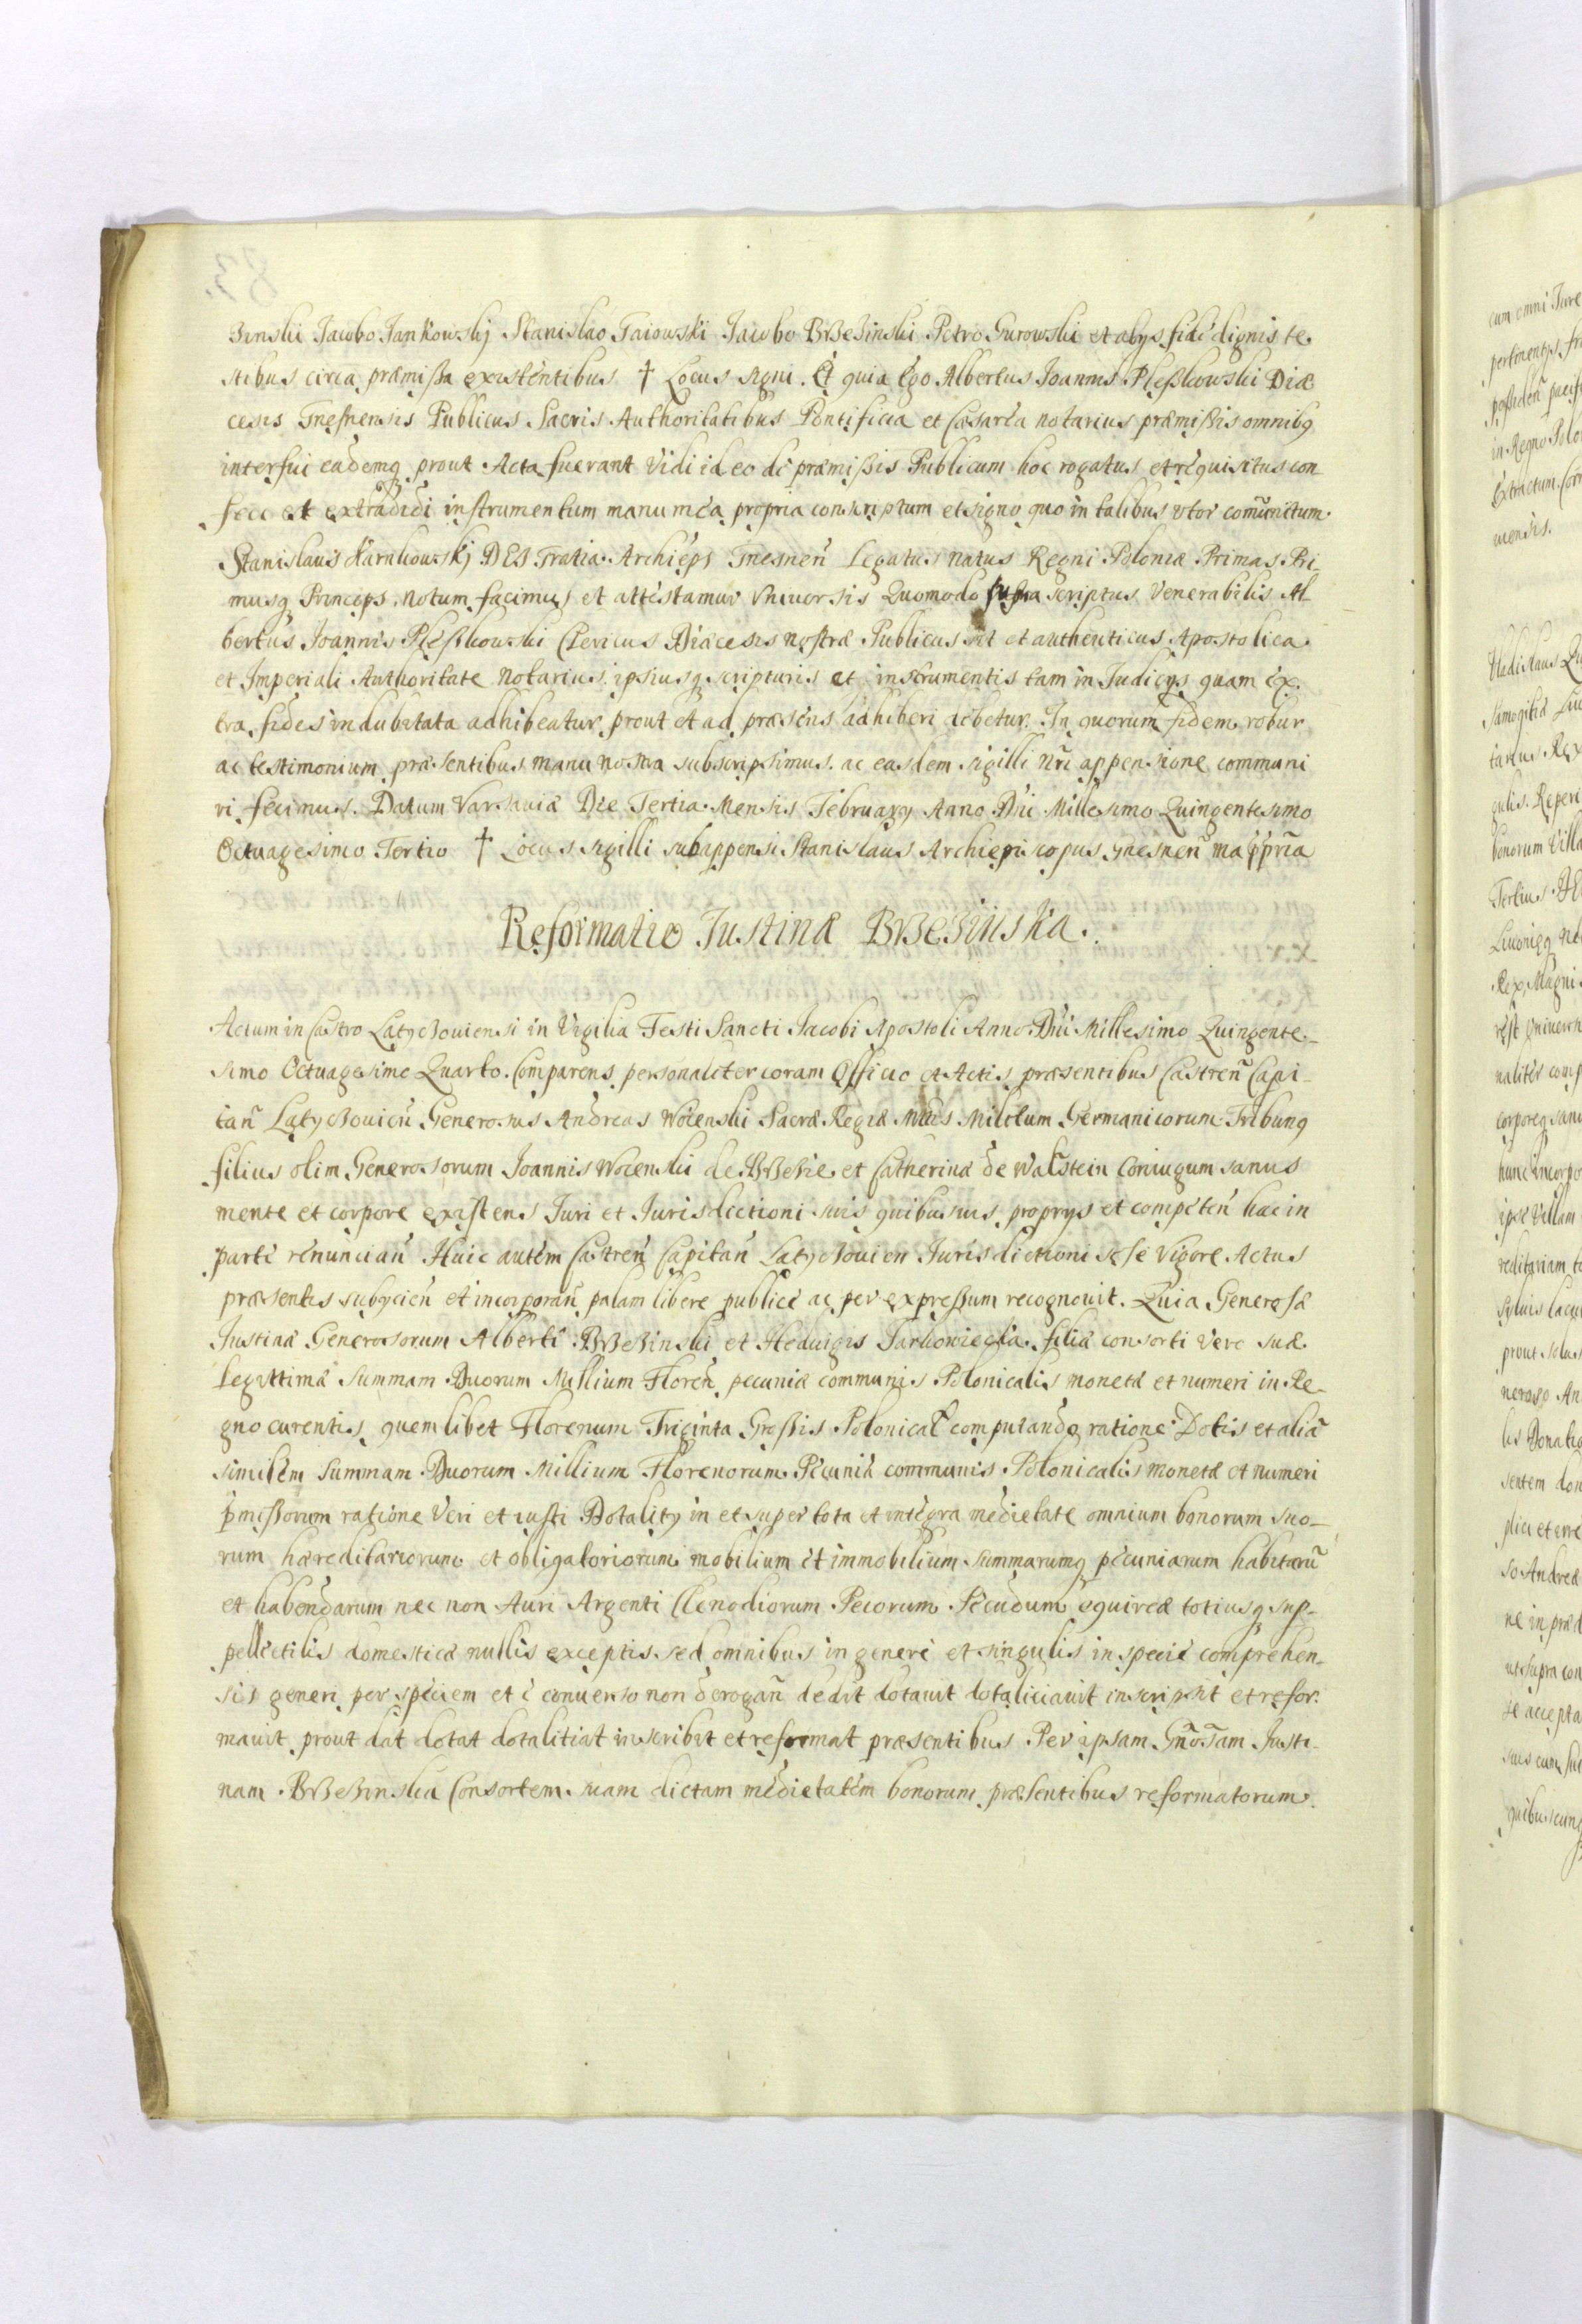 zinski Jacobo Jankowskj Stanislao Gaiowski Jacobo Brzezinski Petro Gurowski et alys fide dignis te
stibus circa præmißa existentibus † Locus signi. Et quia Ego Albertus Joannis Pleßkowski Diæ
cesis Gnesnensis Publicus Sacris Authoritatibus Pontificia et Cæsarea notarius præmißis omnibꝫ
interfui eademqꝫ prout Acta fuerant Vidi ideo de præmißis Publicum hoc rogatus et requisitus con
feci et extradidi instrumentum manu mea propria conscriptum et signo quo in talibus vtor com̃unitum
Stanislaus Karnkowskj DEI Gratia Archiep̃s Gnesneñ Legatus natus Regni Poloniæ Primas Pri-
musqꝫ Princeps notum facimus et attestamur Vniuersis Quomodo supra scriptus Venerabilis Al-
bertus Joannis Pleßkowski Clericus Diæcesis nostræ Publicus sit et authenticus Apostolica
et Imperiali Authoritate notarius ipsiusqꝫ scripturis et instrumentis tam in Judicys quam ex
tra fides indubitata adhibeatur prout et ad præsens adhiberi debetur. In quorum fidem robur
ac testimonium præsentibus manu nostra subscripsimus ac easdem sigilli nr̃i appensione communi
ri fecimus. Datum Varsaviæ Die Tertia Mensis February Anno Dñi Millesimo Quingentesimo
Octuagesimo Tertio † Locus sigilli subappensi Stanislaus Archiepiscopus gnesneñ ma ppria
Reformatio Justinæ Brzezinska.
Actum in Castro Latyczouiensi in Vigilia Festi Sancti Jacobi Apostoli Anno Dñi Millesimo Quingente-
simo Octuagesimo Quarto. Comparens personaliter coram Officio et Actis præsentibus Castreñ Capi-
tañ Latyczouieñ Generosus Andreas Wolenski Sacræ Regiæ Mtt̃is Militum Germanicorum Tribunꝫ
filius olim Generosorum Joannis Wolenski de Brzezie et Catherinæ de Walstein Coniugum sanus
mente et corpore existens Juri et Jurisdictioni suis quibusuis proprys et competeñ hac in
parte renunciañ Huic autem Castreñ Capitañ Latyczouien Jurisdictioni sese Vigore Actus
præsentis subycieñ et incorporañ palam libere publice ac per expreßum recognouit. Quia Generosæ
Justinæ Generosorum Alberti Brzezinski et Heduigis Jarkowiecka filiæ consorti Vero suæ
legittimæ Summam Duorum Millium Floreñ pecuniæ communis Polonicalis monetæ et numeri in Re-
gno curentis quemlibet Florenum Triginta Großis Polonical̃ computando ratione Dotis et aliã
similem Summam Duorum Millium Florenorum Pecuniæ communis Polonicalis monetæ et numeri
p̃mißorum ratione Veri et iusti Dotality in et super tota et integra medietate omnium bonorum suo-
rum hæreditariorum et obligatoriorum mobilium et immobilium summarumqꝫ pecuniarum habitarũ
et habendarum nec non Auri Argenti Clenodiorum Pecorum Pecudum equireæ totiusqꝫ sup-
pellectilis domesticæ nullis exceptis sed omnibus in genere et singulis in specie comprehen-
sis generi per speciem et e conuerso non derogañ dedit dotauit dotaliciauit inscripsit et refor-
mauit prout dat dotat dotalitiat inscribit et reformat præsentibus Per ipsam Gñosam Justi-
nam Brzezinska Consortem suam dictam medietatem bonorum præsentibus reformatorum